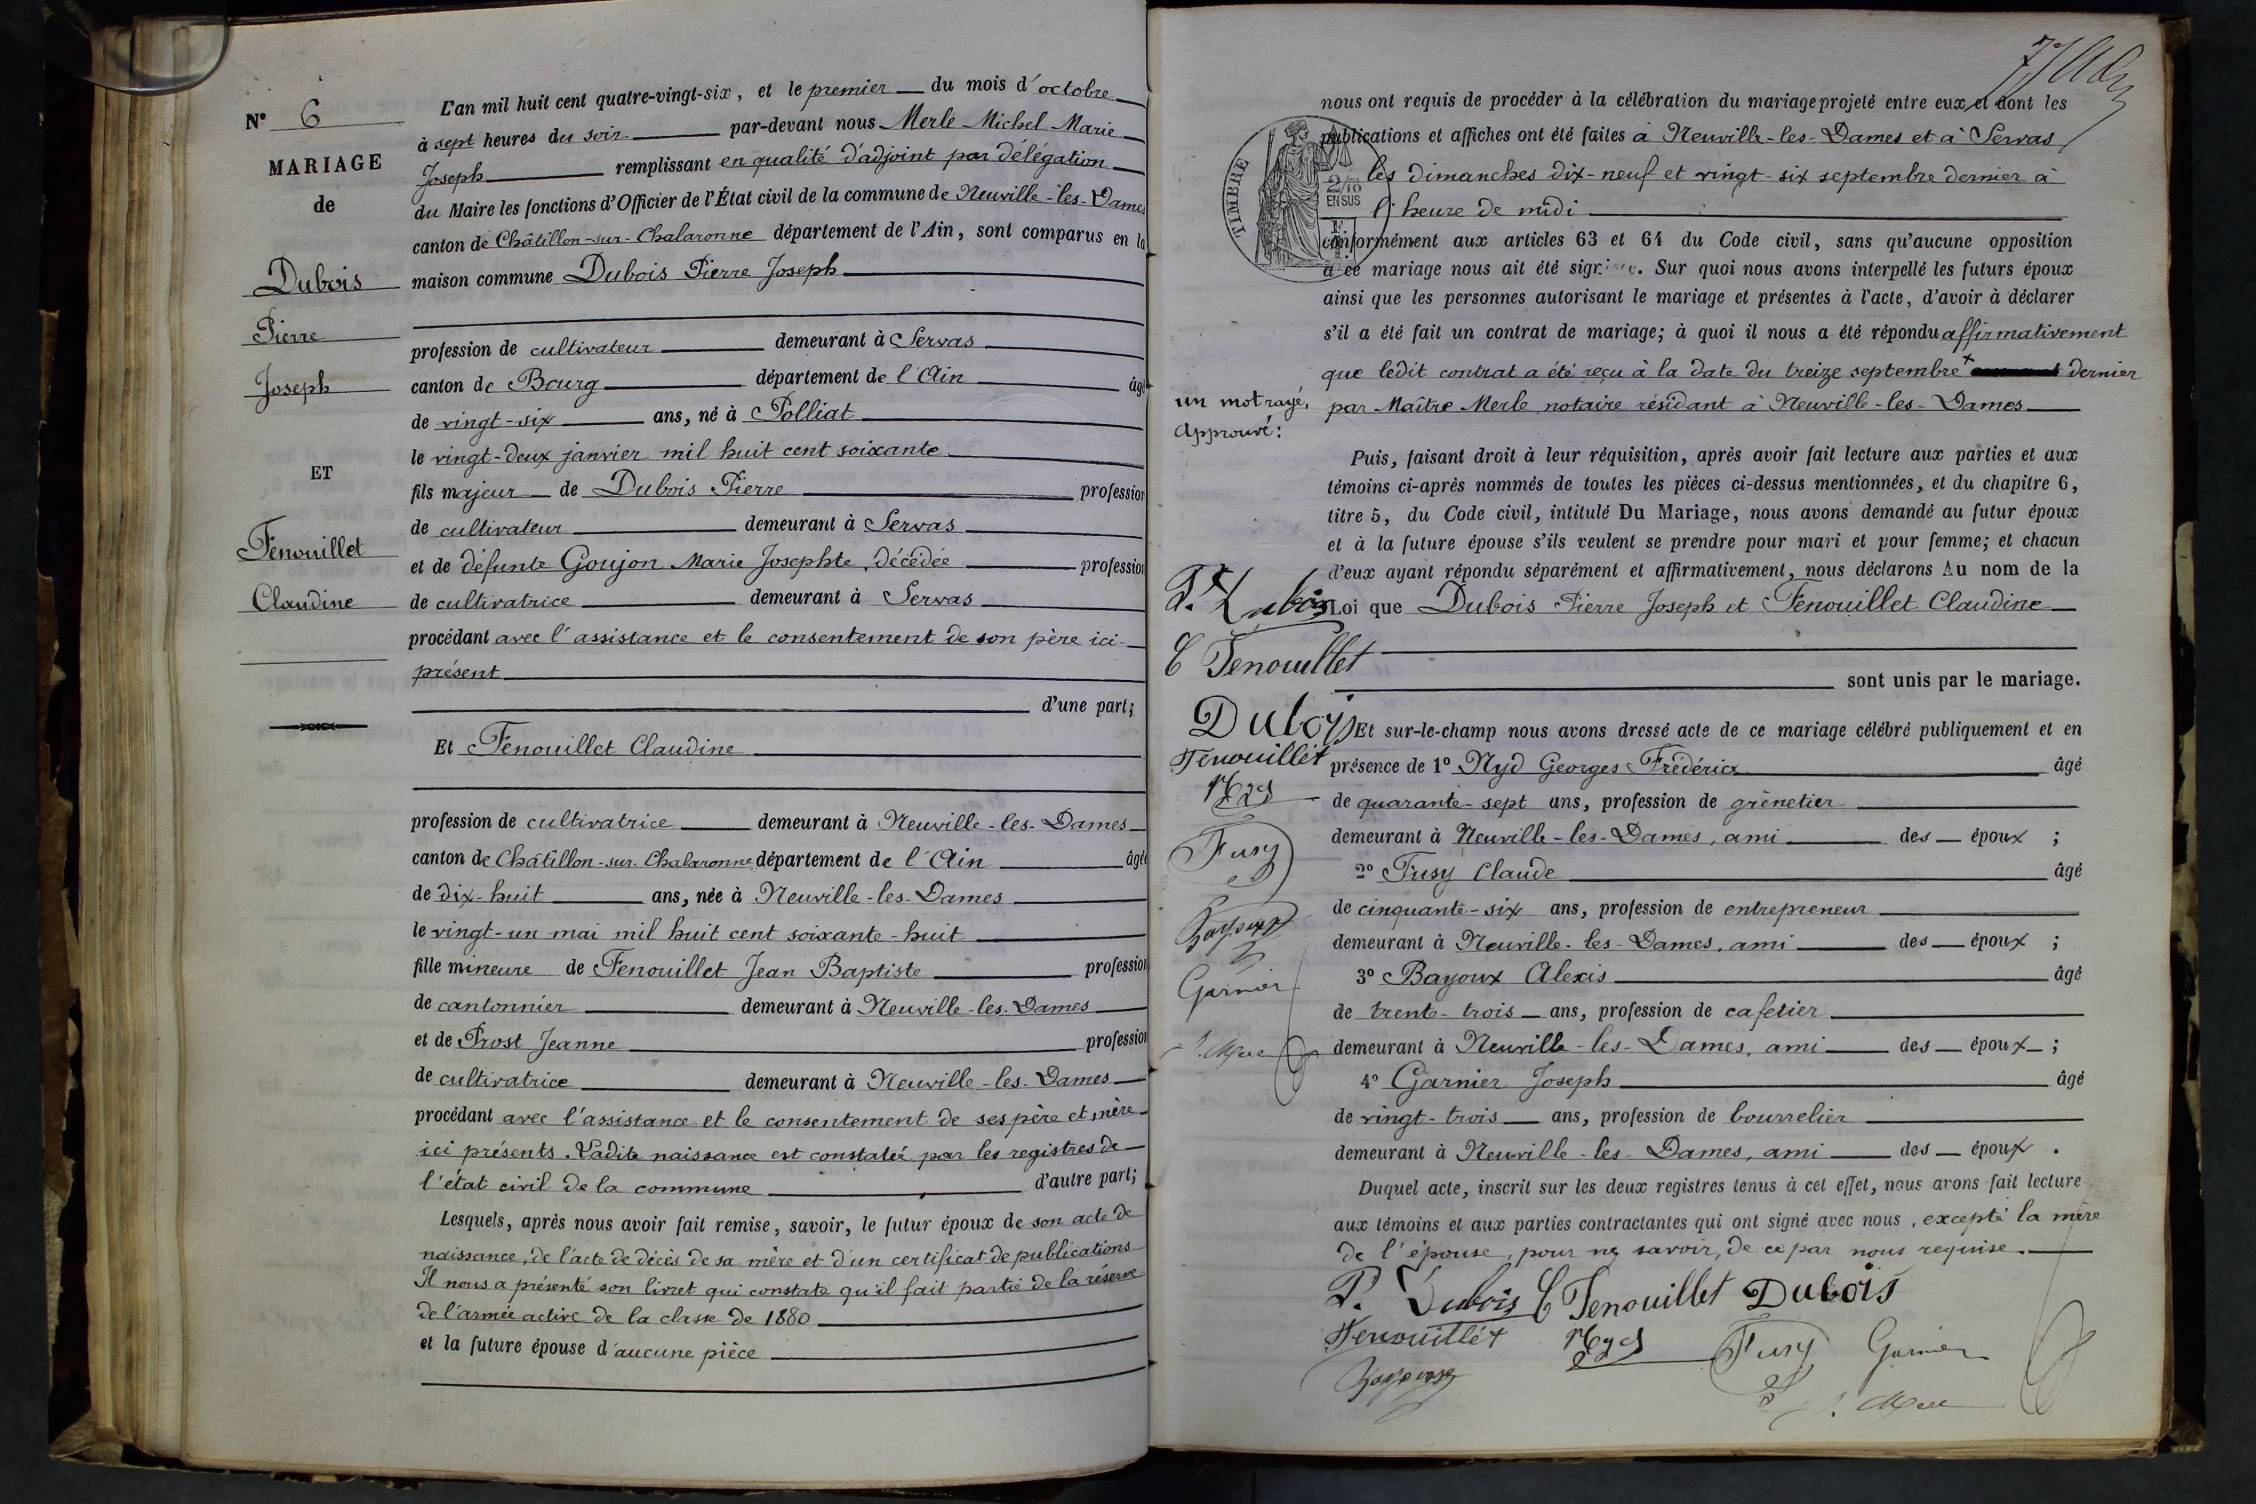 N° 6
MARIAGE
de
Dubois
Pierre
Joseph
ET
Fenouillet
Claudine
L'an mil huit cent quatre-vingt-six, et le premier du mois d'octobre
à sept heures du soir par-devant nous Merle Michel Marie
Joseph remplissant en qualité d'adjoint par délégation
du Maire les fonctions d'Officier de l'État civil de la commune de Neuville-les-Dames
canton de Châtillon-sur-Chalaronne département de l'Ain, sont comparus en la
maison commune Dubois Pierre Joseph
profession de cultivateur demeurant à Servas
canton de Bourg département de l'Ain âgé
de vingt-six ans, né à Polliat
le vingt-deux janvier mil huit cent soixante
fils majeur de Dubois Pierre profession
de cultivateur demeurant à Servas
et de défunte Goujon Marie Josephte, décédée profession
de cultivatrice demeurant à Servas
procédant avec l'assistance et le consentement de son père ici-
présent
d'une part;
Et Fenouillet Claudine
profession de cultivatrice demeurant à Neuville-les-Dames
canton de Châtillon-sur-Chalaronne département de l'Ain âgée
de dix-huit ans, née à Neuville-les-Dames
le vingt-un mai mil huit cent soixante-huit
fille mineure de Fenouillet Jean Baptiste profession
de cantonnier demeurant à Neuville-les-Dames
et de Prost Jeanne profession
de cultivatrice demeurant à Neuville-les-Dames
procédant avec l'assistance et le consentement de ses père et mère
ici présents. Ladite naissance est constatée par les registres de
l'état civil de la commune d'autre part;
Lesquels, après nous avoir fait remise, savoir, le futur époux de son acte de
naissance, de l'acte de décès de sa mère et d'un certificat de publications
Il nous a présenté son livret qui constate qu'il fait partie de la réserve
de l'armée active de la classe de 1880
et la future épouse d'aucune pièce
nous ont requis de procéder à la célébration du mariage projeté entre eux et dont les
publications et affiches ont été faites à Neuville-les-Dames et à Servas
les dimanches dix-neuf et vingt-six septembre dernier à
l'heure de midi
TIMBRE
2/10
EN SUS
conformément aux articles 63 et 64 du Code civil, sans qu'aucune opposition
à ce mariage nous ait été signifiée. Sur quoi nous avons interpellé les futurs époux
ainsi que les personnes autorisant le mariage et présentes à l'acte, d'avoir à déclarer
s'il a été fait un contrat de mariage; à quoi il nous a été répondu affirmativement
que ledit contrat a été reçu à la date du treize septembre × dernier
par Maître Merle notaire résidant à Neuville-les-Dames
un mot rayé,
Approuvé:
Puis, faisant droit à leur réquisition, après avoir fait lecture aux parties et aux
témoins ci-après nommés de toutes les pièces ci-dessus mentionnées, et du chapitre 6,
titre 5, du Code civil, intitulé Du Mariage, nous avons demandé au futur époux
et à la future épouse s'ils veulent se prendre pour mari et pour femme; et chacun
d'eux ayant répondu séparément et affirmativement, nous déclarons Au nom de la
Loi que Dubois Pierre Joseph et Fenouillet Claudine
sont unis par le mariage.
P. Dubois
C Fenouillet
Dubois
Fenouillet
Nyd
Fusy
Bayoux
Garnier
Et sur-le-champ nous avons dressé acte de ce mariage célébré publiquement et en
présence de 1° Nyd Georges Frédérick âgé
de quarante-sept ans, profession de grènetier
demeurant à Neuville-les-Dames, ami des époux ;
2° Fusy Claude âgé
de cinquante-six ans, profession de entrepreneur
demeurant à Neuville-les-Dames, ami des époux ;
3° Bayoux Alexis âgé
de trente-trois ans, profession de cafetier
demeurant à Neuville-les-Dames, ami des époux ;
4° Garnier Joseph âgé
de vingt-trois ans, profession de bourrelier
demeurant à Neuville-les-Dames, ami des époux .
Duquel acte, inscrit sur les deux registres tenus à cet effet, nous avons fait lecture
aux témoins et aux parties contractantes qui ont signé avec nous, excepté la mère
de l'épouse, pour ne savoir, de ce par nous requise.
P. Dubois C Fenouillet Dubois
Fenouillet Nyd Fusy Garnier
Bayoux